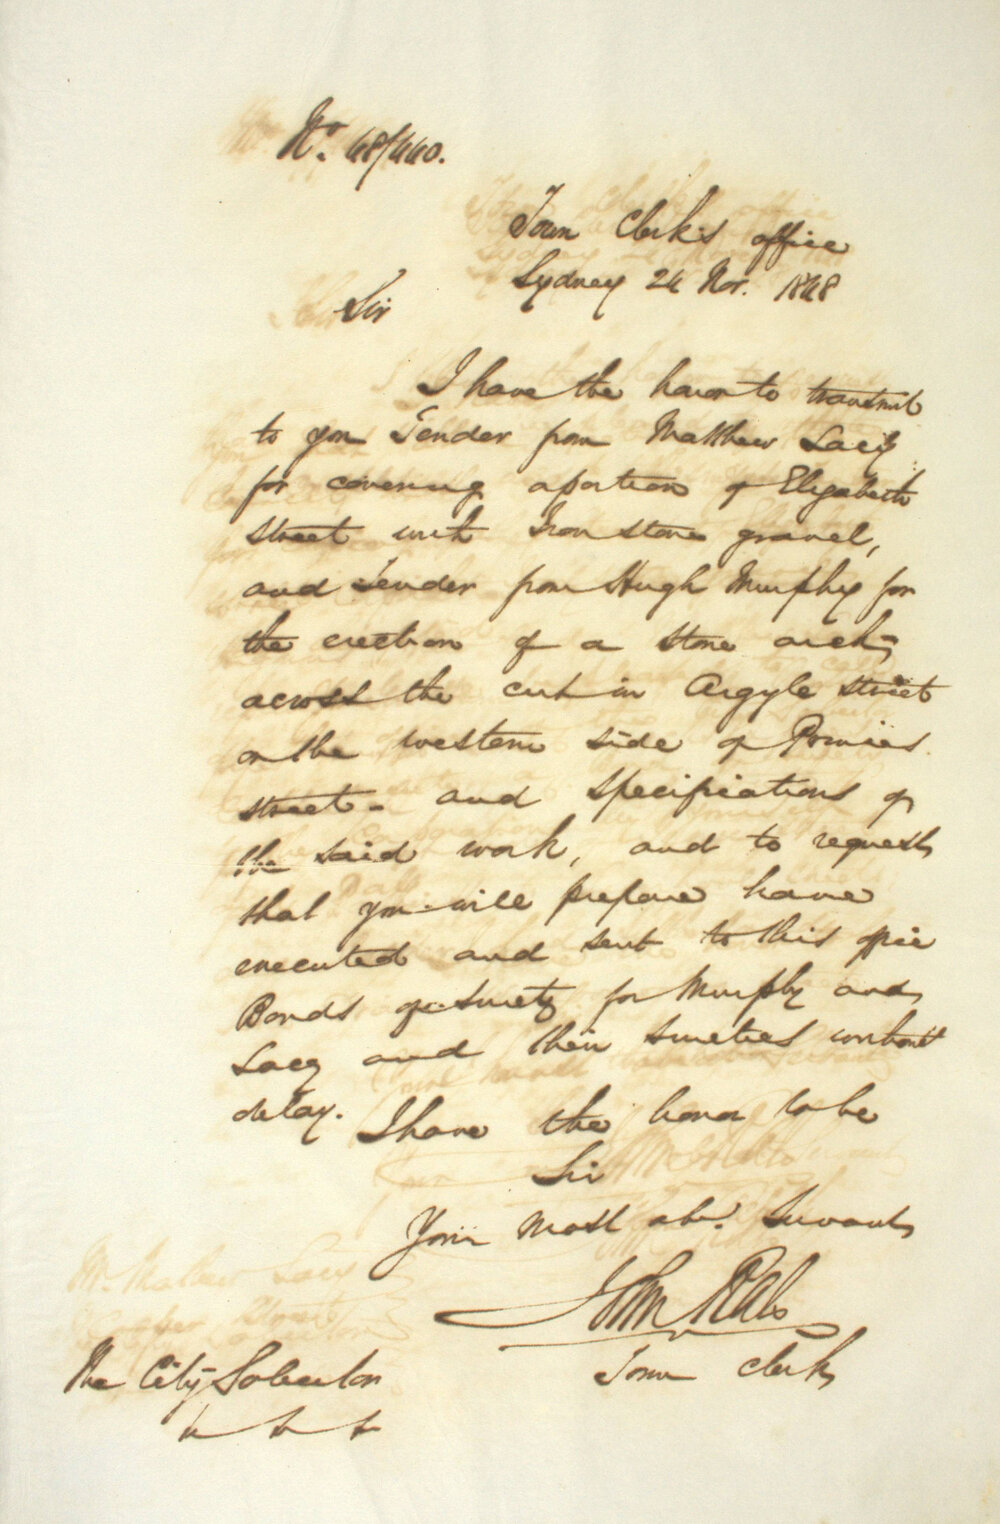 No. 48/440.
Town Clerk's office
Sydney 24 Nov. 1848
Sir
I have the honor to transmit
to you Tender from Matthew Lacey
for covering a portion of Elizabeth
street with Iron stone gravel,
and Tender from Hugh Murphy for
the erection of a stone arch
across the cut in Argyle street
on the western side of Princes
street - and specifications of
the said work, and to request
that you will prepare have
executed and sent to this office
Bonds of Surety for Murphy and
Lacey and their sureties without
delay.
I have the honor to be
Sir
Your most obt. Servant
John Rae
Town Clerk
The City Solicitor